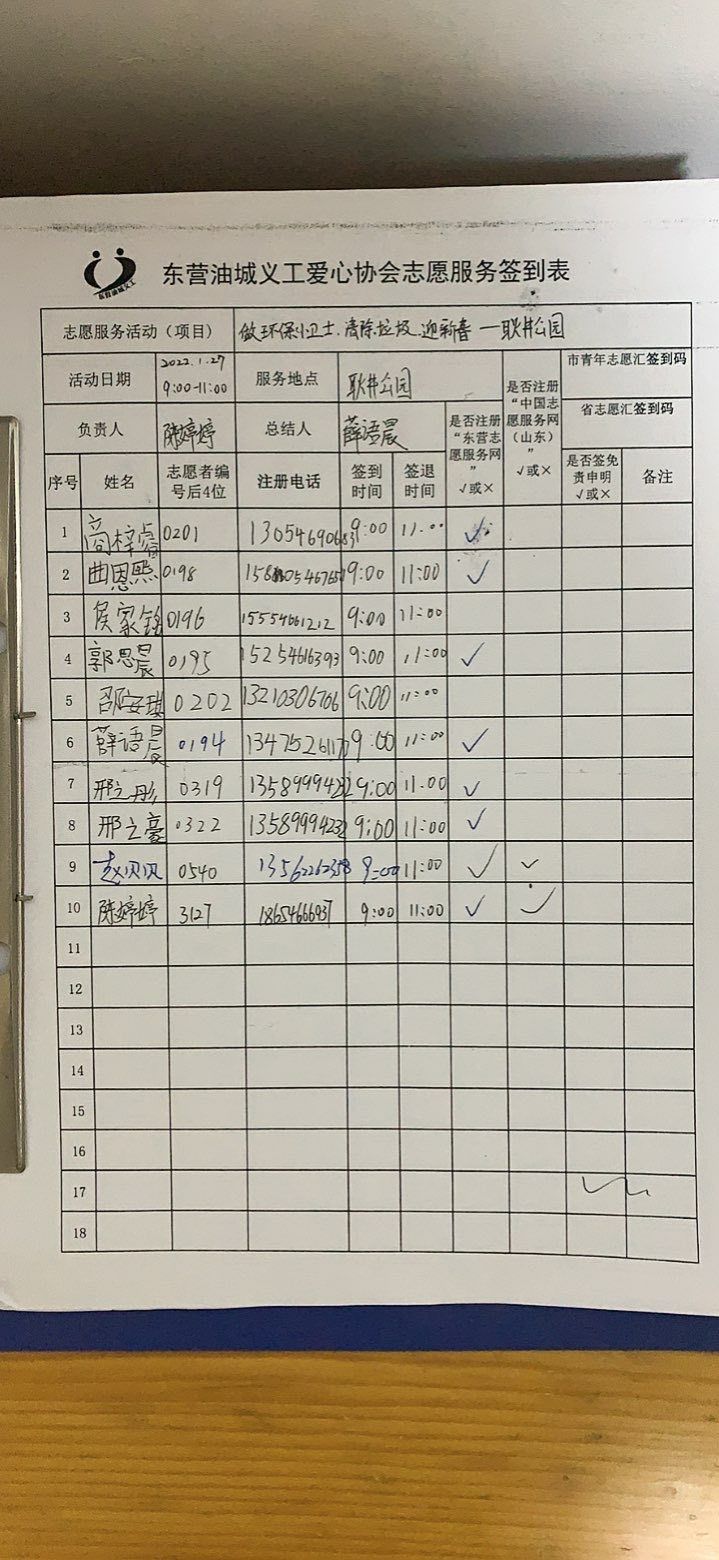 东营油城义工
东营油城义工爱心协会志愿服务签到表
志愿服务活动（项目） 做环保小卫士.清除垃圾.迎新春 —耿井公园
活动日期 2022.1.27 9:00-11:00 服务地点 耿井公园 是否注册“中国志愿服务网（山东）” √或× 市青年志愿汇签到码
负责人 陈婷婷 总结人 薛语晨 是否注册“东营志愿服务网” √或× 省志愿汇签到码
序号 姓名 志愿者编号后4位 注册电话 签到时间 签退时间 是否签免责申明 √或× 备注
1 高梓睿 0201 9:00 11:00 ✓
2 曲恩熙 0198 9:00 11:00 ✓
3 侯家铭 0196 15554661212 9:00 11:00
4 郭思晨 0195 15254616393 9:00 11:00 ✓
5 邵安琪 0202 13210306766 9:00 11:00
6 薛语晨 0194 9:00 11:00 ✓
7 邢之彤 0319 13589994232 9:00 11.00 ✓
8 邢之豪 0322 13589994232 9:00 11:00 ✓
9 赵贝贝 0540 13562262358 9:00 11:00 ✓ ✓
10 陈婷婷 3127 18654666937 9:00 11:00 ✓ ✓
11
12
13
14
15
16
17
18